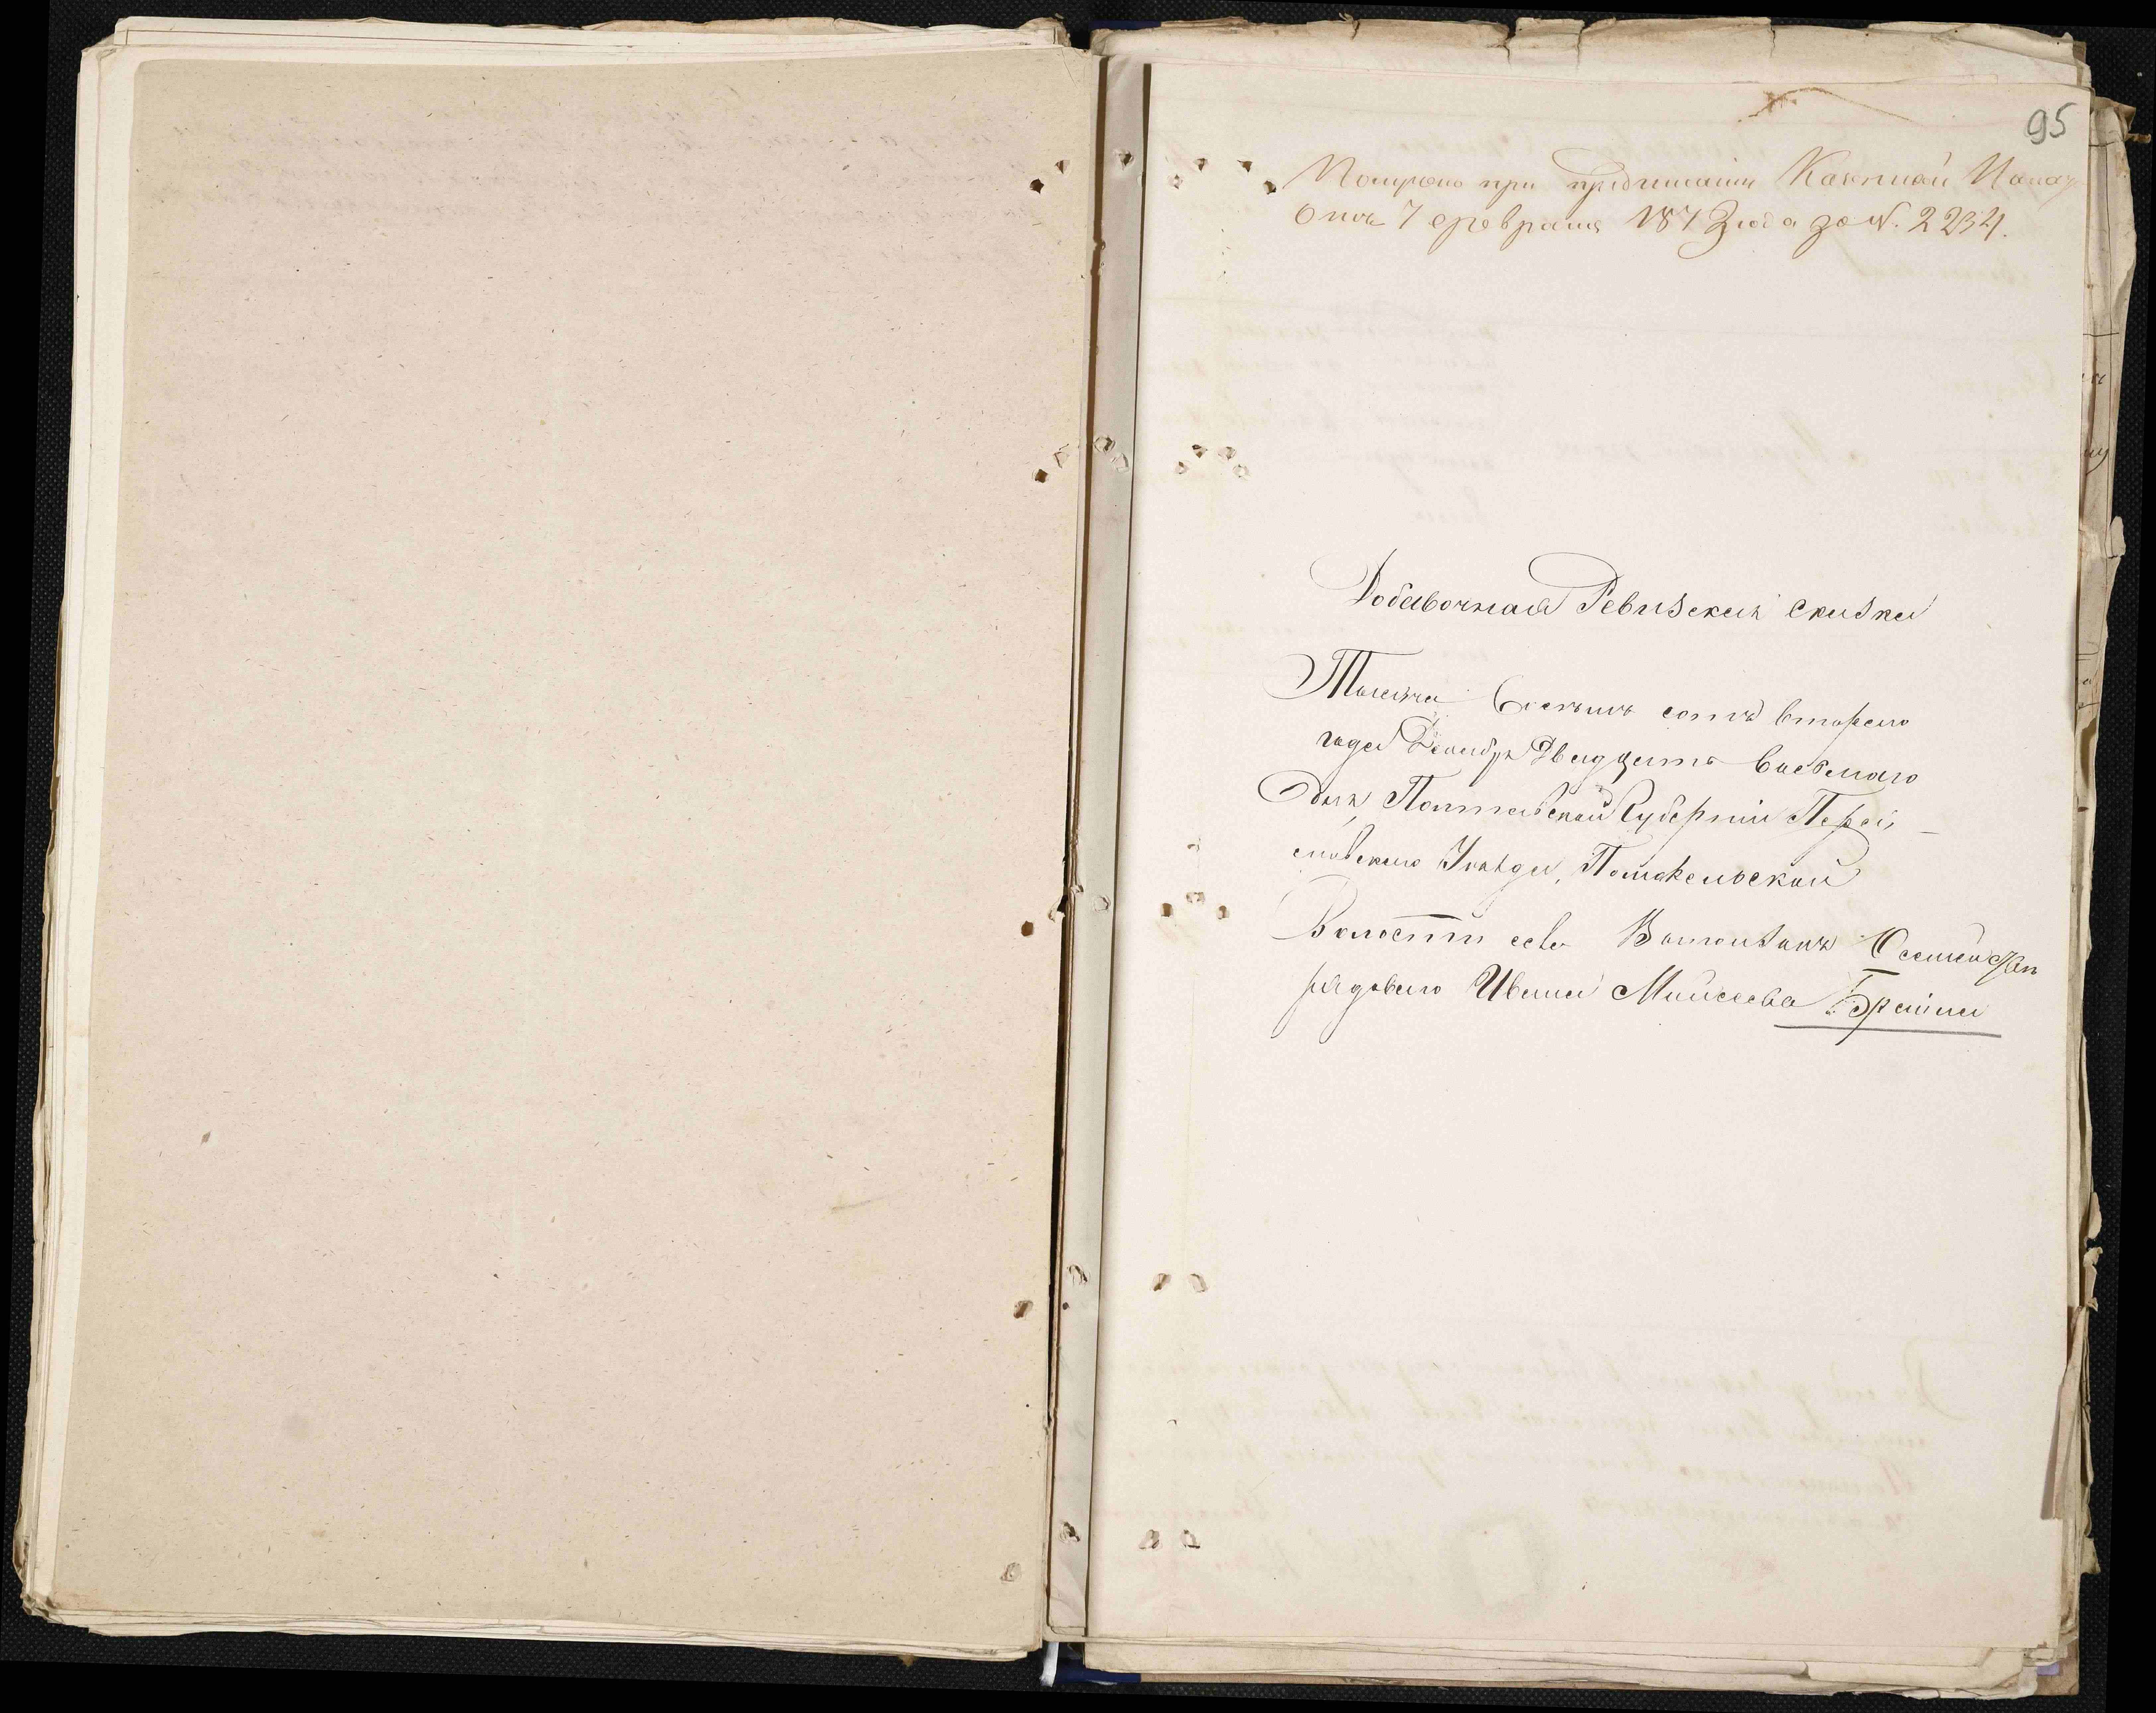 95
Получено при предписаніи Казенной Палаты
Отъ 7 февраля 1873 года за №. 2234.
Добавочная Ревизская сказка
Тысяча Восемь сотъ втораго
года Декабря Двадцать Восьмаго
дня, Полтавской Губерніи Перея-
славскаго Уѣзда, Помокельской
Волости села
рядоваго Ивана Мойсеева Брайка